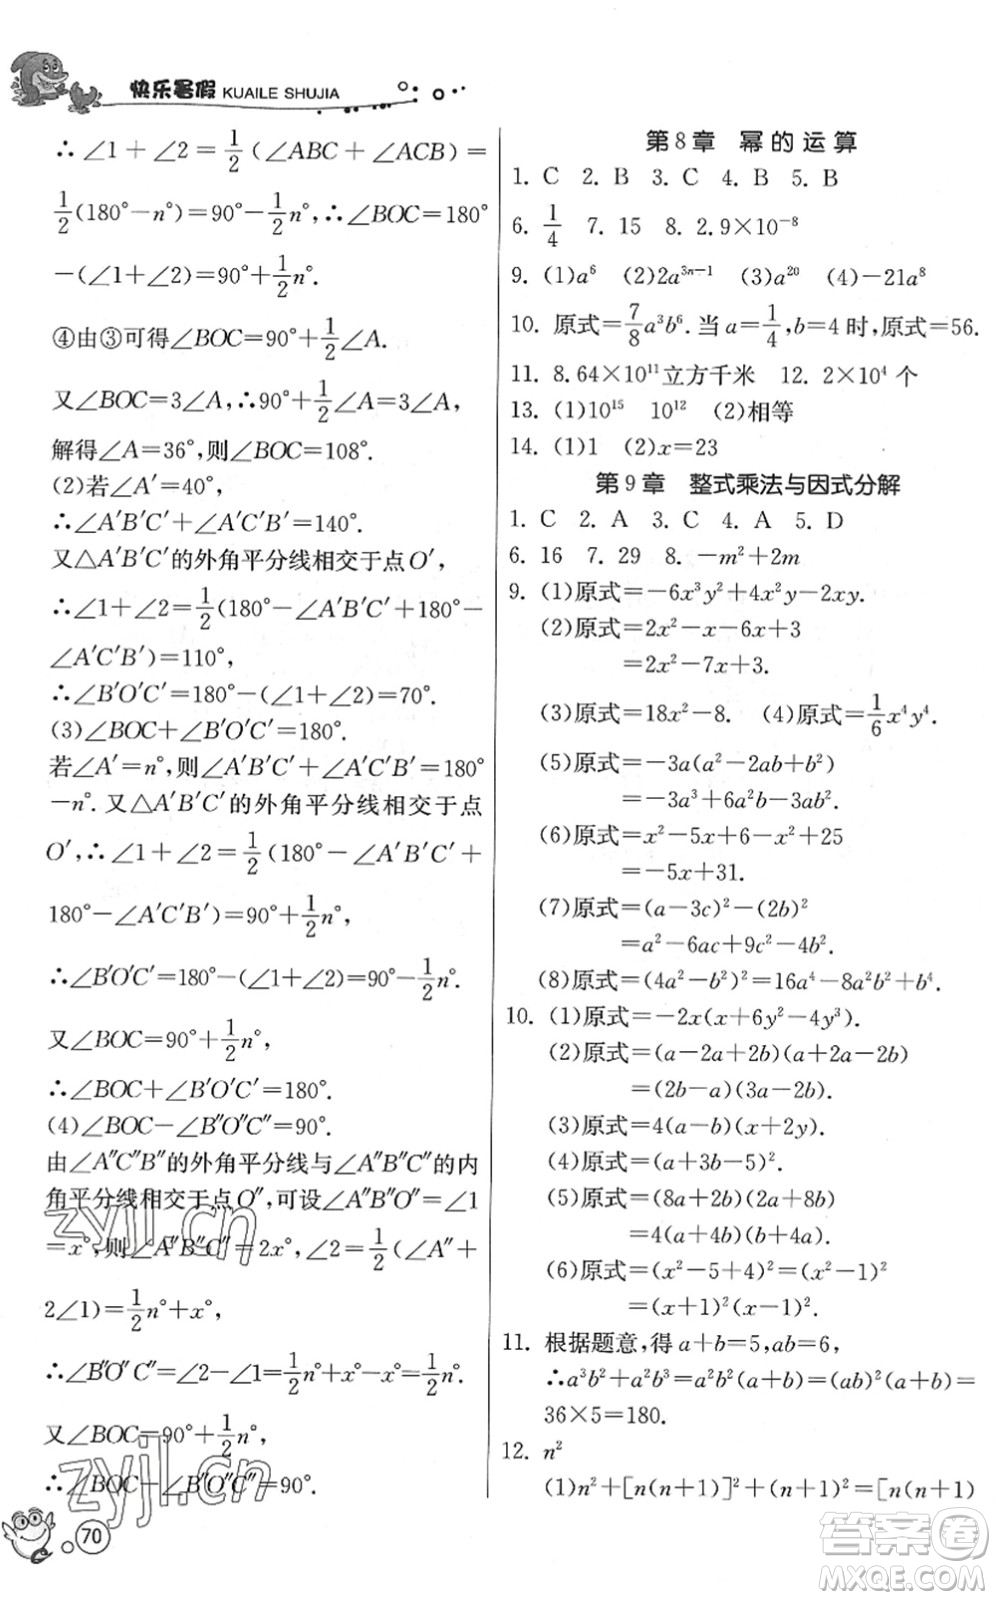 快乐暑假 KUAILE SHUJIA
∴∠1+∠2=1/2(∠ABC+∠ACB)=
1/2(180°-n°)=90°-1/2n°,∴∠BOC=180°
-(∠1+∠2)=90°+1/2n°.
④由③可得∠BOC=90°+1/2∠A.
又∠BOC=3∠A,∴90°+1/2∠A=3∠A,
解得∠A=36°,则∠BOC=108°.
(2)若∠A′=40°,
∴∠A′B′C′+∠A′C′B′=140°.
又△A′B′C′的外角平分线相交于点O′,
∴∠1+∠2=1/2(180°-∠A′B′C′+180°-
∠A′C′B′)=110°,
∴∠B′O′C′=180°-(∠1+∠2)=70°.
(3)∠BOC+∠B′O′C′=180°.
若∠A′=n°,则∠A′B′C′+∠A′C′B′=180°
-n°.又△A′B′C′的外角平分线相交于点
O′,∴∠1+∠2=1/2(180°-∠A′B′C′+
180°-∠A′C′B′)=90°+1/2n°,
∴∠B′O′C′=180°-(∠1+∠2)=90°-1/2n°.
又∠BOC=90°+1/2n°,
∴∠BOC+∠B′O′C′=180°.
(4)∠BOC-∠B″O″C″=90°.
由∠A″C″B″的外角平分线与∠A″B″C″的内
角平分线相交于点O″,可设∠A″B″O″=∠1
=x°,则∠A″B″C″=2x°,∠2=1/2(∠A″+
2∠1)=1/2n°+x°,
∴∠B″O″C″=∠2-∠1=1/2n°+x°-x°=1/2n°.
又∠BOC=90°+1/2n°,
∴∠BOC-∠B″O″C″=90°.
70
第8章 幂的运算
1. C 2. B 3. C 4. B 5. B
6. 1/4 7. 15 8. 2.9×10⁻⁸
9. (1)a⁶ (2)2a³ⁿ⁻¹ (3)a²⁰ (4)-21a⁸
10. 原式=7/8a³b⁶.当a=1/4,b=4时,原式=56.
11. 8.64×10¹¹立方千米 12. 2×10⁴个
13. (1)10¹⁵ 10¹² (2)相等
14. (1)1 (2)x=23
第9章 整式乘法与因式分解
1. C 2. A 3. C 4. A 5. D
6. 16 7. 29 8. -m²+2m
9. (1)原式=-6x³y²+4x²y-2xy.
(2)原式=2x²-x-6x+3
=2x²-7x+3.
(3)原式=18x²-8. (4)原式=1/6x⁴y⁴.
(5)原式=-3a(a²-2ab+b²)
=-3a³+6a²b-3ab².
(6)原式=x²-5x+6-x²+25
=-5x+31.
(7)原式=(a-3c)²-(2b)²
=a²-6ac+9c²-4b².
(8)原式=(4a²-b²)²=16a⁴-8a²b²+b⁴.
10. (1)原式=-2x(x+6y²-4y³).
(2)原式=(a-2a+2b)(a+2a-2b)
=(2b-a)(3a-2b).
(3)原式=4(a-b)(x+2y).
(4)原式=(a+3b-5)².
(5)原式=(8a+2b)(2a+8b)
=4(4a+b)(a+4b).
(6)原式=(x²-5+4)²=(x²-1)²
=(x+1)²(x-1)².
11. 根据题意,得a+b=5,ab=6,
∴a³b²+a²b³=a²b²(a+b)=(ab)²(a+b)=
36×5=180.
12. n²
(1)n²+[n(n+1)]²+(n+1)²=[n(n+1)
zyjl.cn
zyjl.cn
答案圈
MXQE.COM